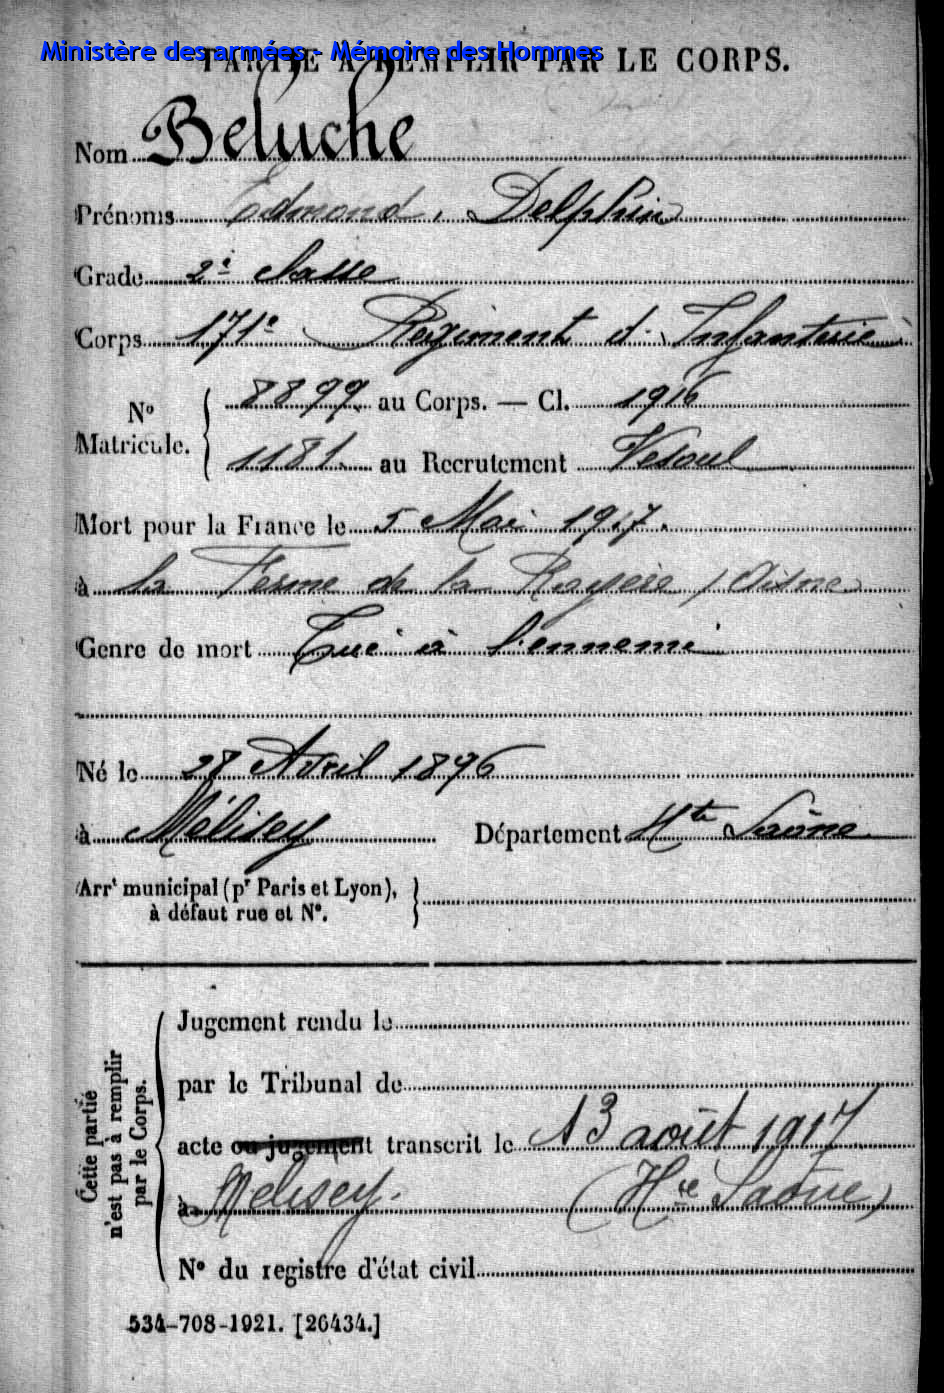 Ministère des armées - Mémoire des Hommes
PARTIE A REMPLIR PAR LE CORPS.
Nom Beluche
Prénoms Edmond, Delphin
Grade 2e classe
Corps 171e Régiment d'Infanterie
No Matricule. 8899 au Corps. — Cl. 1916
1181. au Recrutement Vesoul
Mort pour la France le 5 Mai 1917.
à la Ferme de la Royère, Aisne
Genre de mort Tué à l'ennemi
Né le 28 Avril 1896
à Mélisey Département Hte Saône
Arrt municipal (pr Paris et Lyon), à défaut rue et No.
Cette partie n'est pas à remplir par le Corps.
Jugement rendu le
par le Tribunal de
acte ou jugement transcrit le 13 août 1917
à Mélisey. (Hte Saône)
No du registre d'état civil
534-708-1921. [26434.]